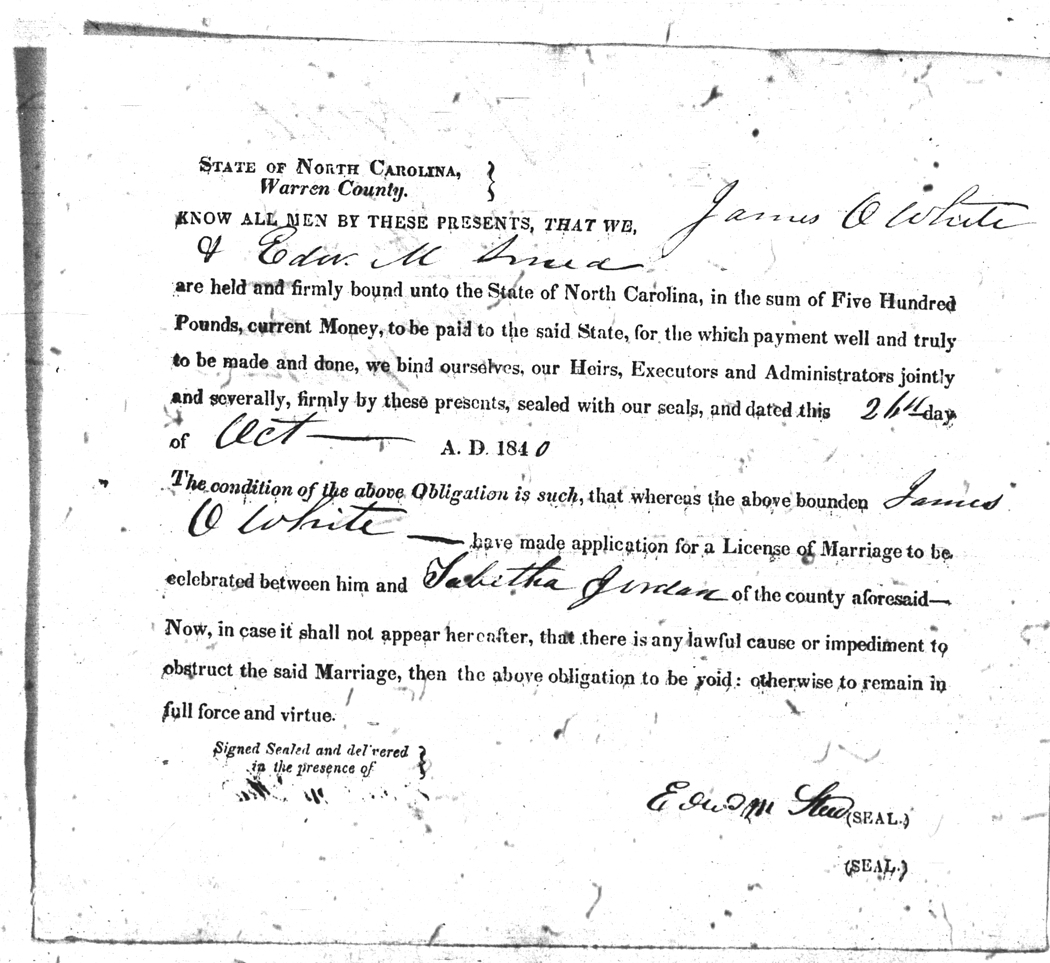 STATE OF NORTH CAROLINA,
Warren County.
KNOW ALL MEN BY THESE PRESENTS, THAT WE, James O White
& Edw. M
are held and firmly bound unto the State of North Carolina, in the sum of Five Hundred
Pounds, current Money, to be paid to the said State, for the which payment well and truly
to be made and done, we bind ourselves, our Heirs, Executors and Administrators jointly
and severally, firmly by these presents, sealed with our seals, and dated this 26th day
of Oct — A. D. 1840
The condition of the above Obligation is such, that whereas the above bounden James
O White — have made application for a License of Marriage to be
celebrated between him and Tabitha Jordan of the county aforesaid—
Now, in case it shall not appear hereafter, that there is any lawful cause or impediment to
obstruct the said Marriage, then the above obligation to be void: otherwise to remain in
full force and virtue.
Signed Sealed and delivered
in the presence of
Edwd M (SEAL.)
(SEAL.)